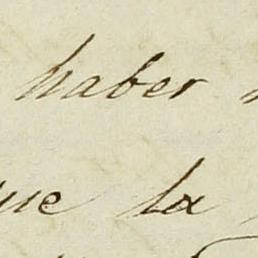 haber
que la